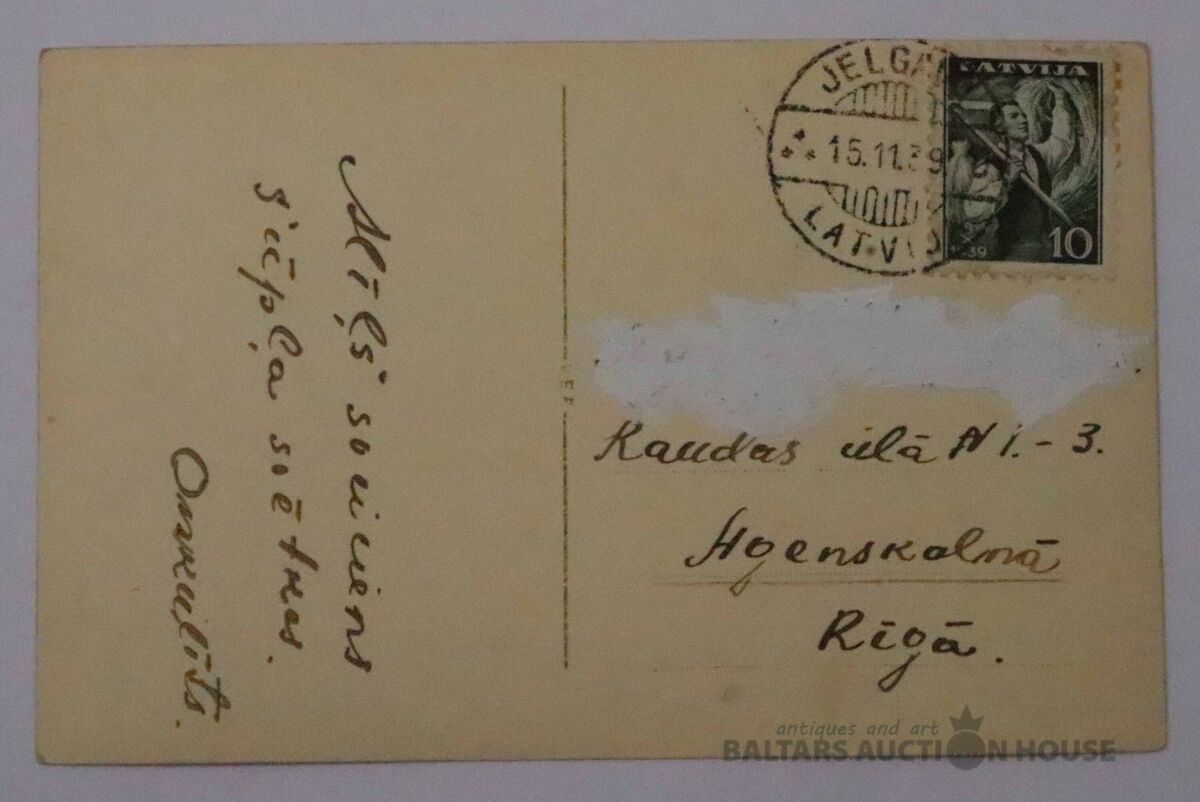 Mīļš sveiciens
sētnes.
Onkulīts.
JELGAVA
15.11.39
LATVIJA
LATVIJA
10
39
ielā N 1. - 3.
Agenskalnā
Rīgā.
antiques and art
BALTARS AUCTION HOUSE